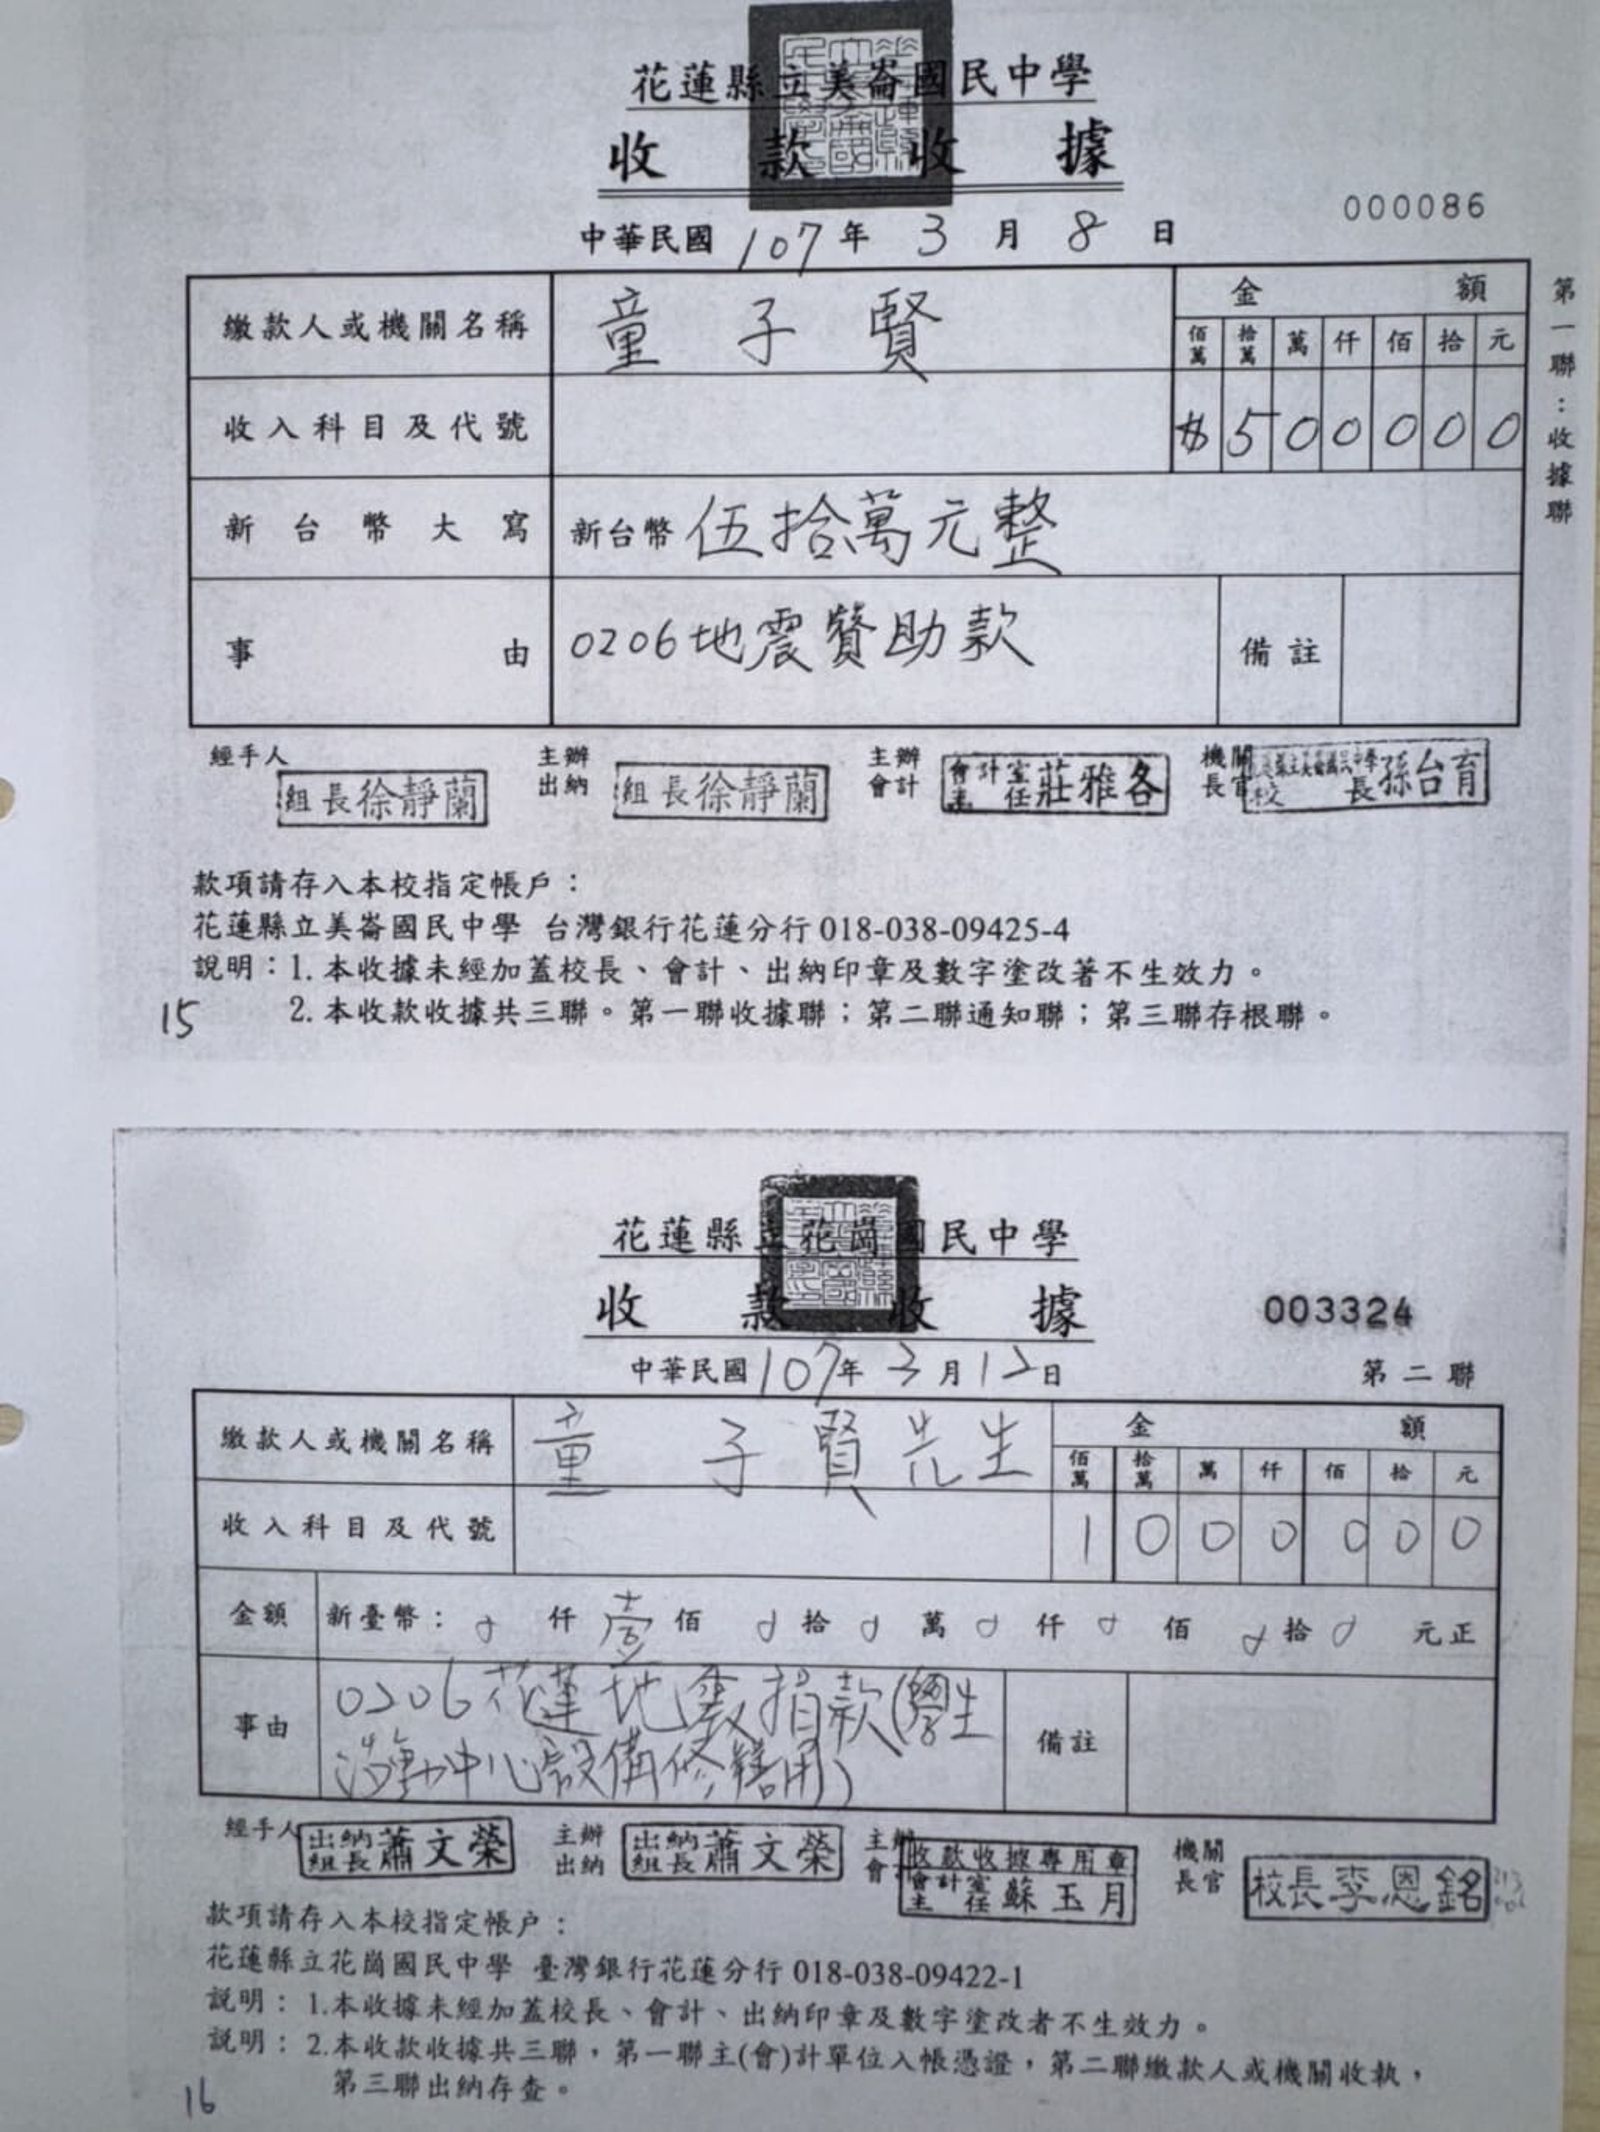 花蓮縣立美崙國民中學
收款收據
000086
中華民國107年3月8日
第一聯：收據聯
繳款人或機關名稱 童子賢 金額
佰萬 拾萬 萬 仟 佰 拾 元
收入科目及代號 $500000
新台幣大寫 新台幣 伍拾萬元整
事由 0206地震贊助款 備註
經手人 組長徐靜蘭 主辦出納 組長徐靜蘭 主辦會計 會計室主任莊雅各 機關長官 校長孫台育
款項請存入本校指定帳戶：
花蓮縣立美崙國民中學 台灣銀行花蓮分行018-038-09425-4
說明：1. 本收據未經加蓋校長、會計、出納印章及數字塗改著不生效力。
2. 本收款收據共三聯。第一聯收據聯；第二聯通知聯；第三聯存根聯。
15
花蓮縣立花崗國民中學
收款收據
003324
中華民國107年3月12日
第二聯
繳款人或機關名稱 童子賢先生 金額
佰萬 拾萬 萬 仟 佰 拾 元
收入科目及代號 1000000
金額 新臺幣： 仟 壹佰 拾 萬 仟 佰 拾 元正
事由 0206花蓮地震捐款(學生
活動中心設備修繕用)
備註
經手人 出納組長蕭文榮 主辦出納 出納組長蕭文榮 主辦會計 收款收據專用章 會計室主任蘇玉月 機關長官 校長李恩銘
款項請存入本校指定帳戶：
花蓮縣立花崗國民中學 臺灣銀行花蓮分行018-038-09422-1
說明：1.本收據未經加蓋校長、會計、出納印章及數字塗改者不生效力。
說明：2.本收款收據共三聯，第一聯主(會)計單位入帳憑證，第二聯繳款人或機關收執，
第三聯出納存查。
16